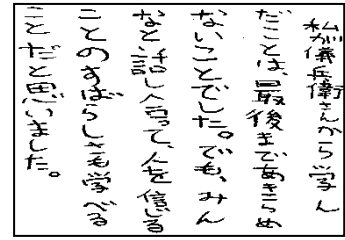 私が儀兵衛さんから学ん
だことは、最後まであきらめ
ないことでした。でも、みん
なと話し合って、人を信じる
ことのすばらしさも学べる
ことだと思いました。